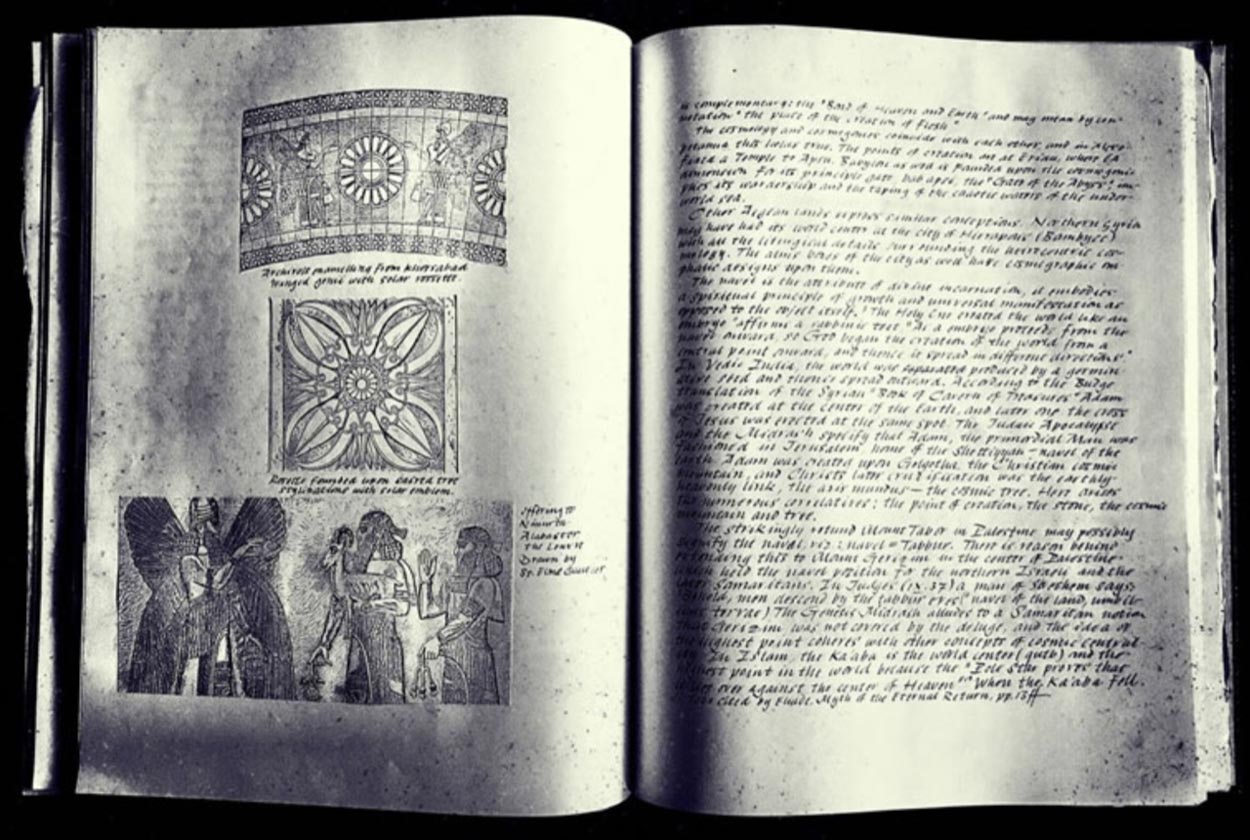 Archivolt enamelling from Khorsabad
winged genii with solar rosette.
Rosette founded upon sacred tree
stylizations with solar emblem.
offering to
Alabaster
the Louvre
Drawn by
St. Elme Gautier
is complementary: the "Bond of Heaven and Earth" and may mean by con-
notation "the place of the creation of flesh"
The cosmology and cosmogonies coincide with each other, and in Meso-
potamia this holas true. The points of creation are at Eridu, where EA
a Temple to Apsu. Babylon as well is founded upon the cosmogonic
dimension for its principle gate, bab apsi, the "Gate of the Abyss" im-
plies its wardership and the taping of the chaotic waters of the under-
world sea.
Other Aegean lands express similar conceptions. Northern Syria
may have had its world center at the city of Hierapolis (Bambyce)
with all the liturgical details surrounding the cos-
mology. The alms boxes of the city as well have cosmographic em-
phatic designs upon them.
The navel is the attribute of divine incarnation, it embodies
a spiritual principle of growth and universal manifestation as
opposed to the object itself. "The Holy One created the world like an
embryo" affirms a rabbinic text "As a embryo proceeds from the
navel onward, so God began the creation of the world from a
central point onward, and thence is spread in different directions"
In Vedic India, the world was separated produced by a germin-
ative seed and thence spread outward. According to the Budge
translation of the Syrian "Book of Cavern of Treasures" Adam
was created at the center of the Earth, and later one the cross
of Jesus was erected at the same spot. The Judaic Apocalypse
and the Midrash specify that Adam, the primordial Man was
fashioned in Jerusalem, home of the Shettiyyan – navel of the
Earth. Adam was created upon Golgotha, the Christian cosmic
mountain, and Christs later crucifixation was the earthly-
heavenly link, the axis mundus – the cosmic tree. Here arises
the numerous correlatives: the point of creation, the stone, the cosmic
mountain and tree.
The strikingly rotund Mount Tabor in Palestine may possibly
signify the navel, viz: navel = Tabbur. There is reason behind
extending this to Mount Gerizim in the center of Palestine
which held the navel position for the northern Israelis and the
later Samaritans. In Judges (ix.37) a man of Shechem says
Behold, men descend by the tabbur eres (navel of the land, umbili-
cus terrae) The Genesis Midrash alludes to a Samaritan notion
that Gerizim was not covered by the deluge, and the idea of
the highest point coheres with other concepts of cosmic central-
ity. In Islam, the Ka'aba is the world center (qutb) and the
highest point in the world because the "Pole Sthe proves that
over against the center of Heaven" When the Ka'aba fell.
cited by Eliade, Myth of the Eternal Return, pp. 13ff